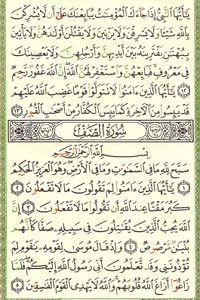 يَٰٓأَيُّهَا ٱلنَّبِيُّ إِذَا جَآءَكَ ٱلْمُؤْمِنَٰتُ يُبَايِعْنَكَ عَلَىٰٓ أَن لَّا يُشْرِكْنَ
بِٱللَّهِ شَيْـًٔا وَلَا يَسْرِقْنَ وَلَا يَزْنِينَ وَلَا يَقْتُلْنَ أَوْلَٰدَهُنَّ وَلَا يَأْتِينَ
بِبُهْتَٰنٍ يَفْتَرِينَهُۥ بَيْنَ أَيْدِيهِنَّ وَأَرْجُلِهِنَّ وَلَا يَعْصِينَكَ
فِى مَعْرُوفٍ فَبَايِعْهُنَّ وَٱسْتَغْفِرْ لَهُنَّ ٱللَّهَ إِنَّ ٱللَّهَ غَفُورٌ رَّحِيمٌ ١٢
يَٰٓأَيُّهَا ٱلَّذِينَ ءَامَنُوا۟ لَا تَتَوَلَّوْا۟ قَوْمًا غَضِبَ ٱللَّهُ عَلَيْهِمْ
قَدْ يَئِسُوا۟ مِنَ ٱلْءَاخِرَةِ كَمَا يَئِسَ ٱلْكُفَّارُ مِنْ أَصْحَٰبِ ٱلْقُبُورِ ١٣
سُورَةُ الصَّفِّ
بِسْمِ ٱللَّهِ ٱلرَّحْمَٰنِ ٱلرَّحِيمِ
سَبَّحَ لِلَّهِ مَا فِى ٱلسَّمَٰوَٰتِ وَمَا فِى ٱلْأَرْضِ وَهُوَ ٱلْعَزِيزُ ٱلْحَكِيمُ
١ يَٰٓأَيُّهَا ٱلَّذِينَ ءَامَنُوا۟ لِمَ تَقُولُونَ مَا لَا تَفْعَلُونَ ٢
كَبُرَ مَقْتًا عِندَ ٱللَّهِ أَن تَقُولُوا۟ مَا لَا تَفْعَلُونَ ٣ إِنَّ
ٱللَّهَ يُحِبُّ ٱلَّذِينَ يُقَٰتِلُونَ فِى سَبِيلِهِۦ صَفًّا كَأَنَّهُم
بُنْيَٰنٌ مَّرْصُوصٌ ٤ وَإِذْ قَالَ مُوسَىٰ لِقَوْمِهِۦ يَٰقَوْمِ لِمَ
تُؤْذُونَنِى وَقَد تَّعْلَمُونَ أَنِّى رَسُولُ ٱللَّهِ إِلَيْكُمْ فَلَمَّا
زَاغُوٓا۟ أَزَاغَ ٱللَّهُ قُلُوبَهُمْ وَٱللَّهُ لَا يَهْدِى ٱلْقَوْمَ ٱلْفَٰسِقِينَ ٥